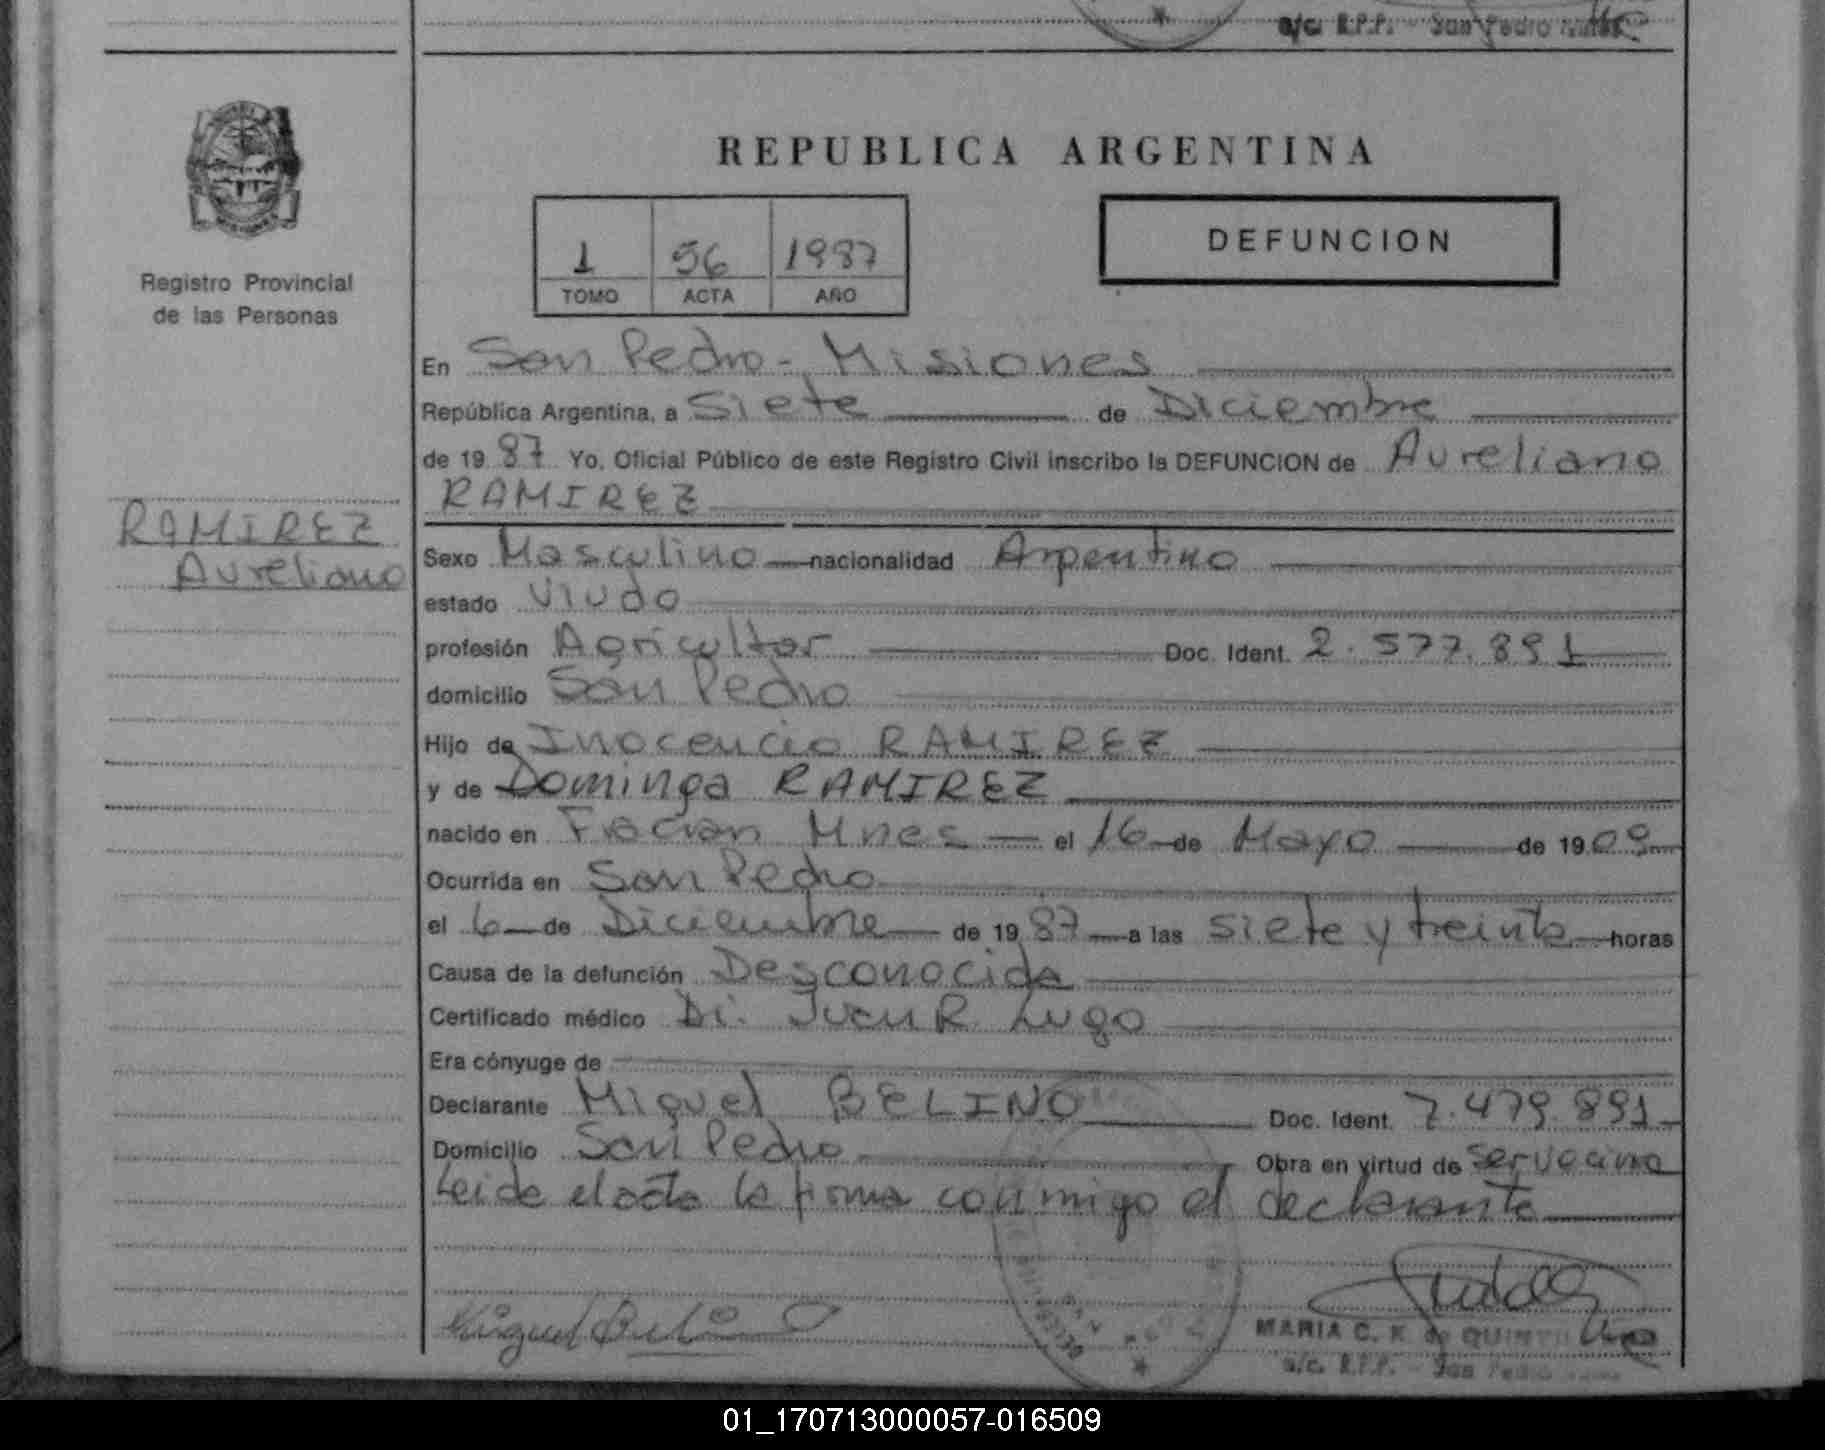 a/c. R.P.P. - San Pedro
REPUBLICA ARGENTINA
1 56 1987
TOMO ACTA AÑO
DEFUNCION
Registro Provincial
de las Personas
En San Pedro - Misiones
República Argentina, a Siete de Diciembre
de 19 87 Yo, Oficial Público de este Registro Civil inscribo la DEFUNCION de Aureliano
RAMIREZ
RAMIREZ
Aureliano
Sexo Masculino nacionalidad Argentino
estado Viudo
profesión Agricultor Doc. Ident. 2.577.891
domicilio San Pedro
Hijo de Inocencio RAMIREZ
y de Dominga RAMIREZ
nacido en Fracran Mnes el 16 de Mayo de 19 09
Ocurrida en San Pedro
el 6 de Diciembre de 19 87 a las siete y treinta horas
Causa de la defunción Desconocida
Certificado médico Dr. Juan R. Lugo
Era cónyuge de
Declarante Miguel BELINO Doc. Ident. 7.479.891
Domicilio San Pedro Obra en virtud de
Leida el acta la firma conmigo el declarante
Miguel
MARIA C. K. de
a/c. R.P.P. - San Pedro
01_170713000057-016509